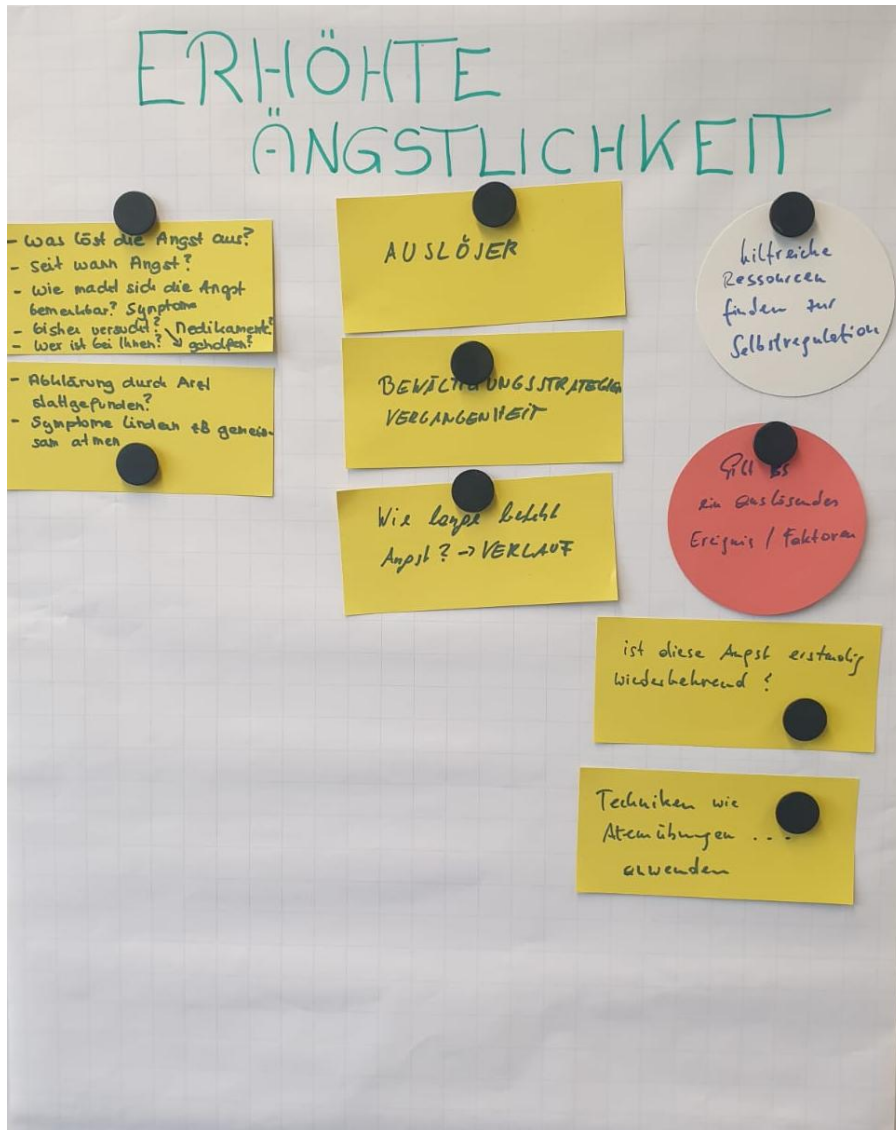 ERHÖHTE
ÄNGSTLICHKEIT
- Was löst die Angst aus?
- Seit wann Angst?
- Wie macht sich die Angst
bemerkbar? Symptome
- bisher versucht? ↘ Medikamente?
- Wer ist bei Ihnen? ↘ geholfen?
- Abklärung durch Arzt
stattgefunden?
- Symptome lindern zB gemein-
sam atmen
AUSLÖSER
BEWÄLTIGUNGSSTRATEGIEN
VERGANGENHEIT
Wie lange besteht
Angst? -> VERLAUF
hilfreiche
Ressourcen
finden zur
Selbstregulation
Gibt es
ein auslösendes
Ereignis / Faktoren
ist diese Angst
wiederkehrend?
Techniken wie
Atemübungen ...
anwenden